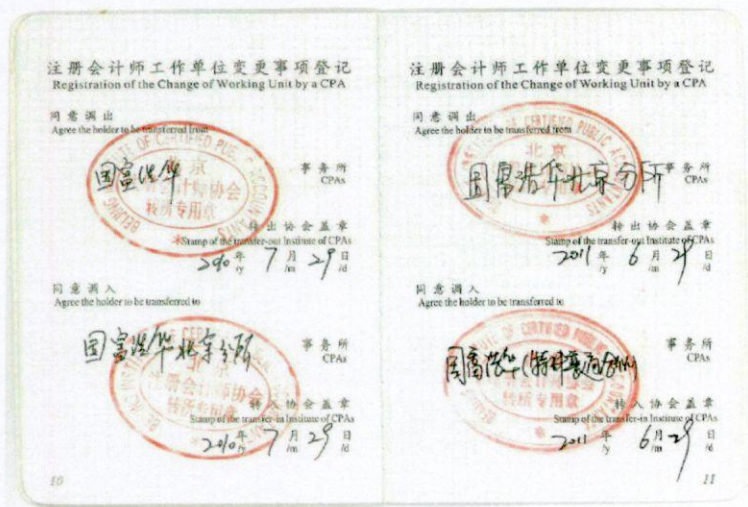 注册会计师工作单位变更事项登记
Registration of the Change of Working Unit by a CPA
同意调出
Agree the holder to be transferred from
国富浩华
事务所
CPAs
转出协会盖章
Stamp of the transfer-out Institute of CPAs
2010 年 7 月 29 日
/y /m /d
同意调入
Agree the holder to be transferred to
国富浩华北京分所
事务所
CPAs
转入协会盖章
Stamp of the transfer-in Institute of CPAs
2010 年 7 月 29 日
/y /m /d
10
注册会计师工作单位变更事项登记
Registration of the Change of Working Unit by a CPA
同意调出
Agree the holder to be transferred from
国富浩华北京分所
事务所
CPAs
转出协会盖章
Stamp of the transfer-out Institute of CPAs
2011 年 6 月 29 日
/y /m /d
同意调入
Agree the holder to be transferred to
国富浩华(特
事务所
CPAs
转入协会盖章
Stamp of the transfer-in Institute of CPAs
2011 年 6 月 29 日
/y /m /d
11